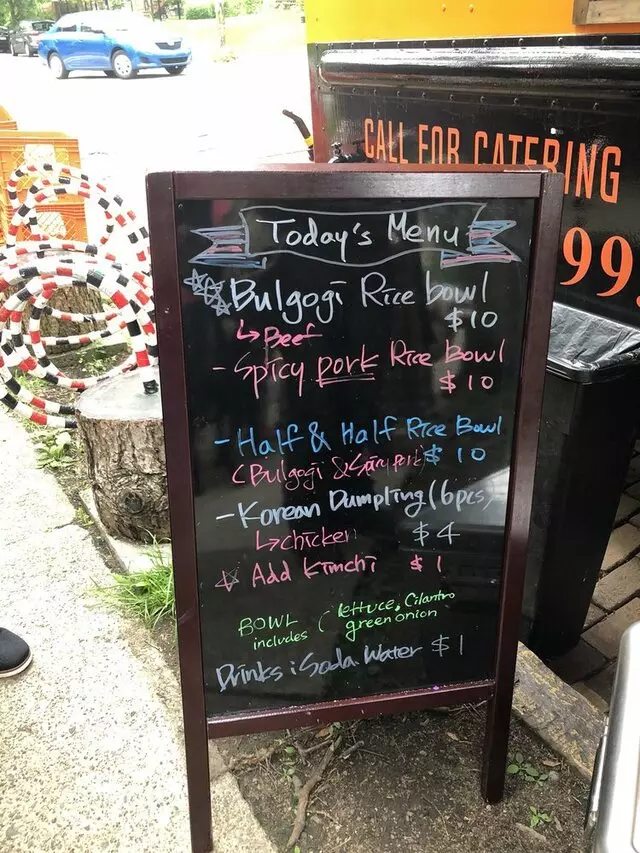 CALL FOR CATERING
99
Today's Menu
Bulgogi Rice bowl
$10
↳ Beef
- Spicy pork Rice Bowl
$10
- Half & Half Rice Bowl
(Bulgogi & Spicy pork) $10
- Korean Dumpling (6pcs)
↳ chicken $4
☆ Add kimchi $1
BOWL includes ( lettuce, Cilantro
green onion
Drinks : Soda. Water $1